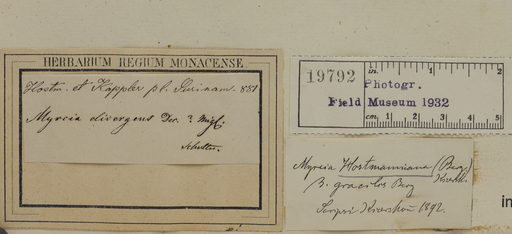 HERBARIUM REGIUM MONACENSE
Hostm. et Kappler pl. Surinam. 881
Myrcia divergens Dec. ? Miq.
19792
in. 1 2
Photogr.
Field Museum 1932
cm. 1 2 3 4 5
Myrcia Hostmanniana (Berg)
B. gracilis Berg
Scripsi Kiaerskou 1892.
in